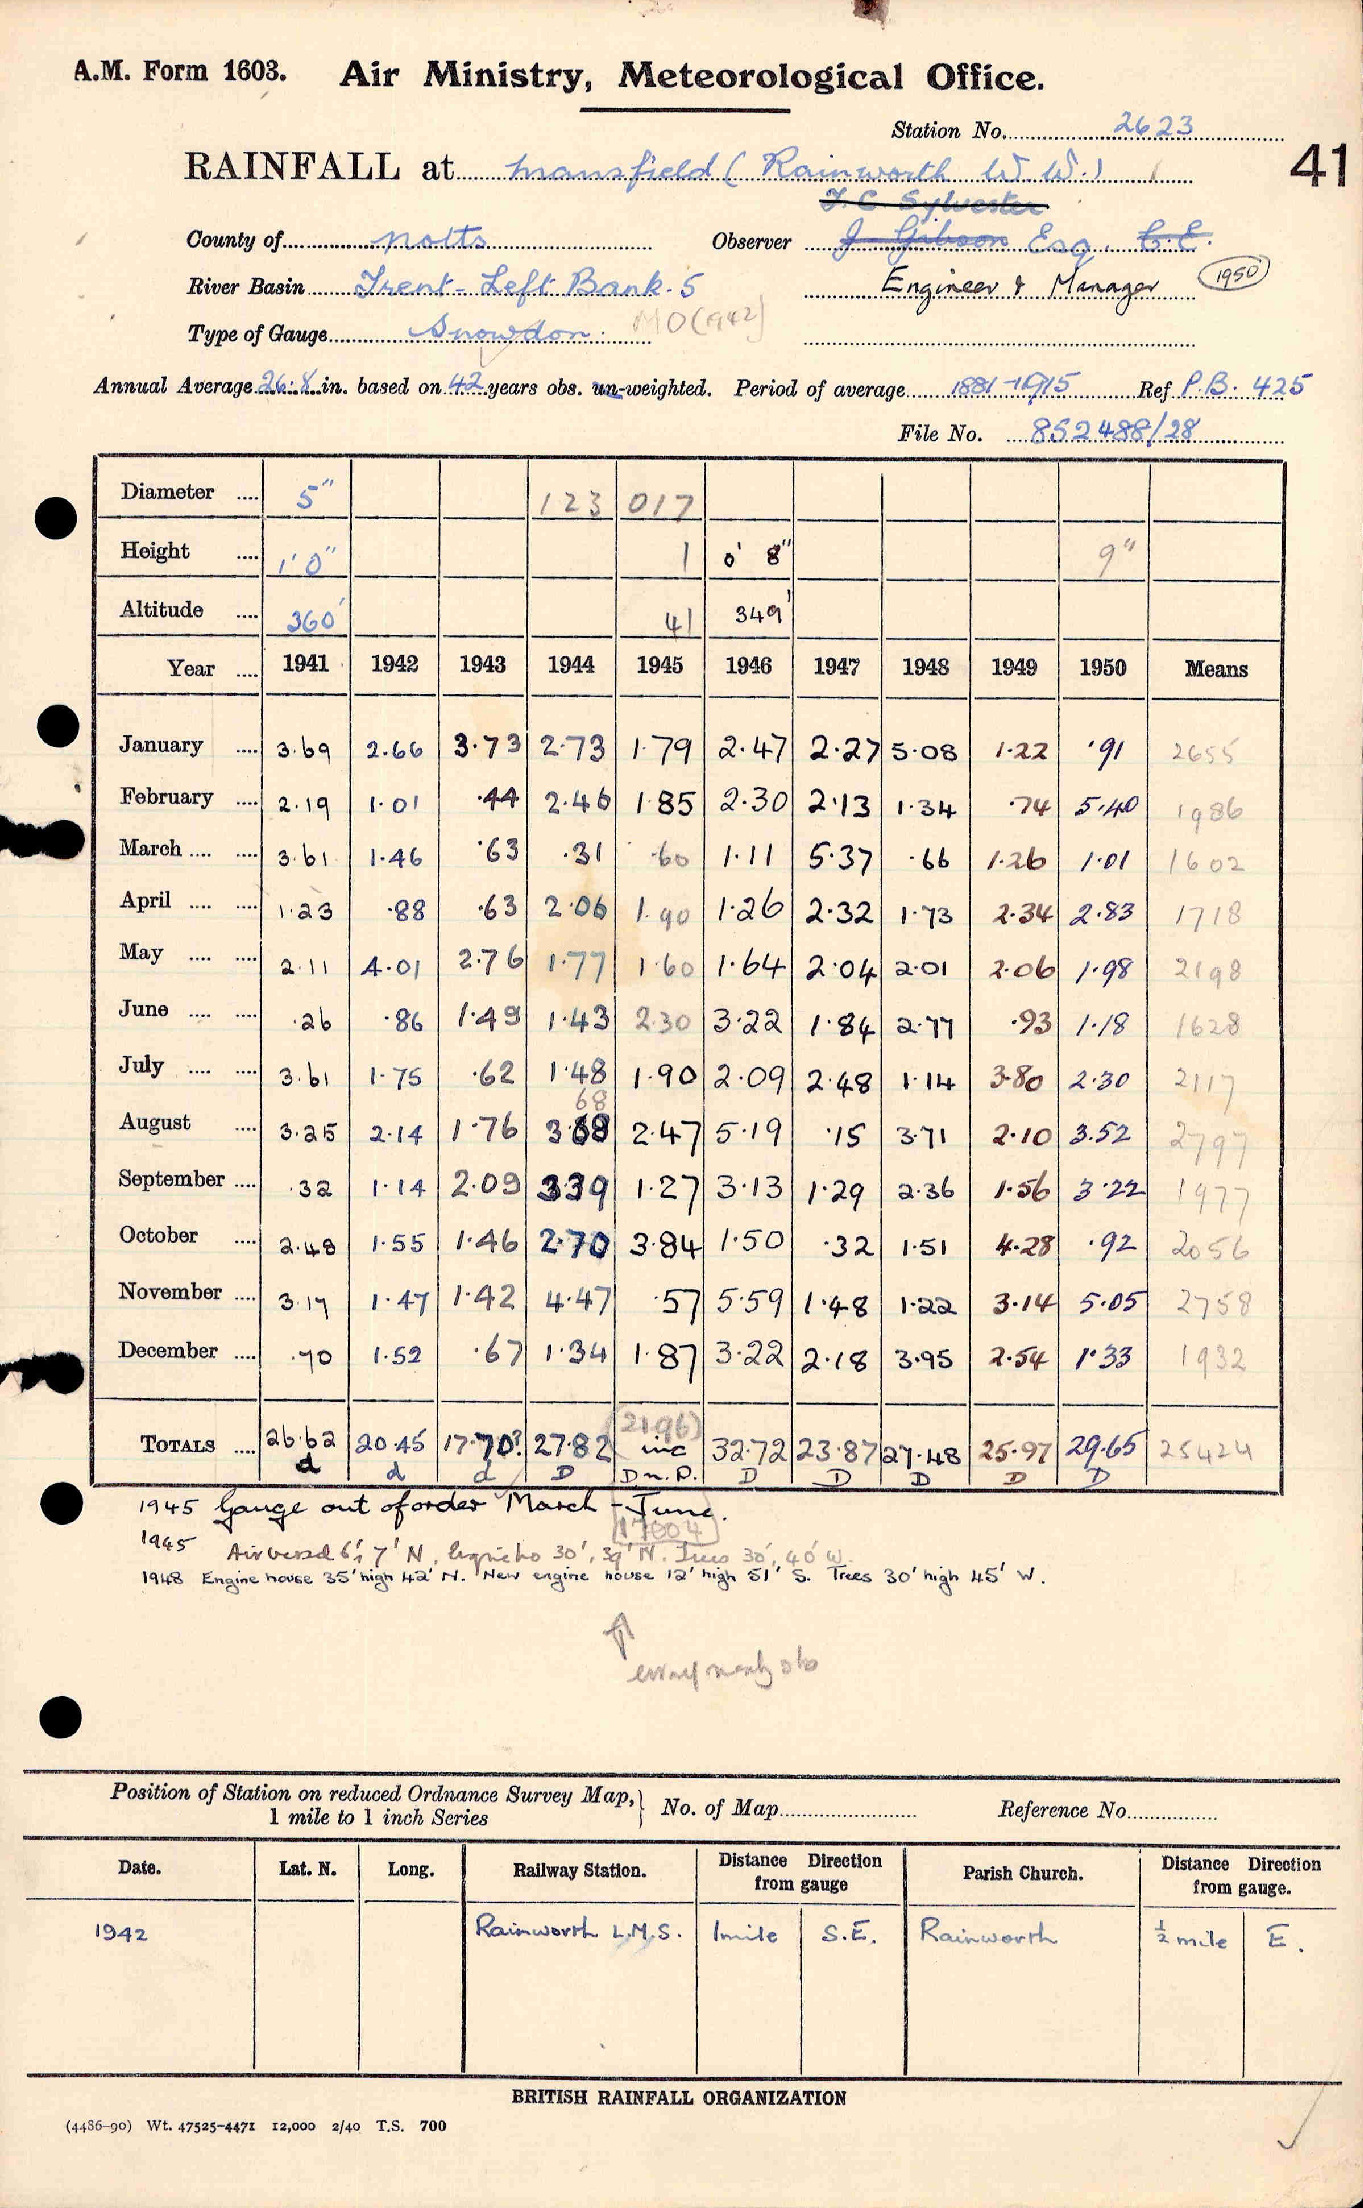 A.M. Form 1603. Air Ministry, Meteorological Office.
Station No. 2623
41
RAINFALL at Mansfield (Rainworth W.W.)
J.C Sylvester
County of Notts Observer J. Gibson Esq. C.E.
River Basin Trent - Left Bank. 5 Engineer & Manager (1950)
Type of Gauge Snowdon. MO (1942)
Annual Average 26.8 in. based on 42 years obs. un-weighted. Period of average 1881-1915 Ref P.B. 425
File No. 852488/28
Diameter .... 5" 123 017
Height .... 1' 0" 1 0' 8" 9"
Altitude .... 360' 41 349'
Year .... 1941 1942 1943 1944 1945 1946 1947 1948 1949 1950 Means
January .... 3.69 2.66 3.73 2.73 1.79 2.47 2.27 5.08 1.22 .91 2655
February .... 2.19 1.01 .44 2.46 1.85 2.30 2.13 1.34 .74 5.40 1986
March .... .... 3.61 1.46 .63 .31 .60 1.11 5.37 .66 1.26 1.01 1602
April .... .... 1.23 .88 .63 2.06 1.90 1.26 2.32 1.73 2.34 2.83 1718
May .... .... 2.11 4.01 2.76 1.77 1.60 1.64 2.04 2.01 2.06 1.98 2198
June .... .... .26 .86 1.49 1.43 2.30 3.22 1.84 2.77 .93 1.18 1628
July .... .... 3.61 1.75 .62 1.48 1.90 2.09 2.48 1.14 3.80 2.30 2117
68
August .... 3.25 2.14 1.76 3.68 2.47 5.19 .15 3.71 2.10 3.52 2797
September .... .32 1.14 2.09 3.39 1.27 3.13 1.29 2.36 1.56 3.22 1977
October .... 2.48 1.55 1.46 2.70 3.84 1.50 .32 1.51 4.28 .92 2056
November .... 3.17 1.47 1.42 4.47 .57 5.59 1.48 1.22 3.14 5.05 2758
December .... .70 1.52 .67 1.34 1.87 3.22 2.18 3.95 2.54 1.33 1932
(21.96)
TOTALS .... 26.62 20.45 17.70? 27.82 inc 32.72 23.87 27.48 25.97 29.65 25424
d d d D D n.P. D D D D D
1945 Gauge out of order March - June.
[17804]
1945 6', 7' N, 30', 39' N. Trees 30', 40' W.
1948 Engine house 35' high 42' N. New engine house 12' high 51' S. Trees 30' high 45' W.
Position of Station on reduced Ordnance Survey Map, } No. of Map Reference No.
1 mile to 1 inch Series
Date. Lat. N. Long. Railway Station. Distance Direction from gauge Parish Church. Distance Direction from gauge.
1942 Rainworth L.M.S. 1 mile S.E. Rainworth ½ mile E.
BRITISH RAINFALL ORGANIZATION
(4486-90) Wt. 47525-4471 12,000 2/40 T.S. 700